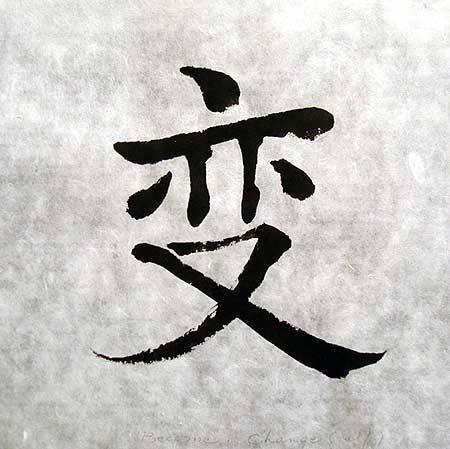 变
Become, Change